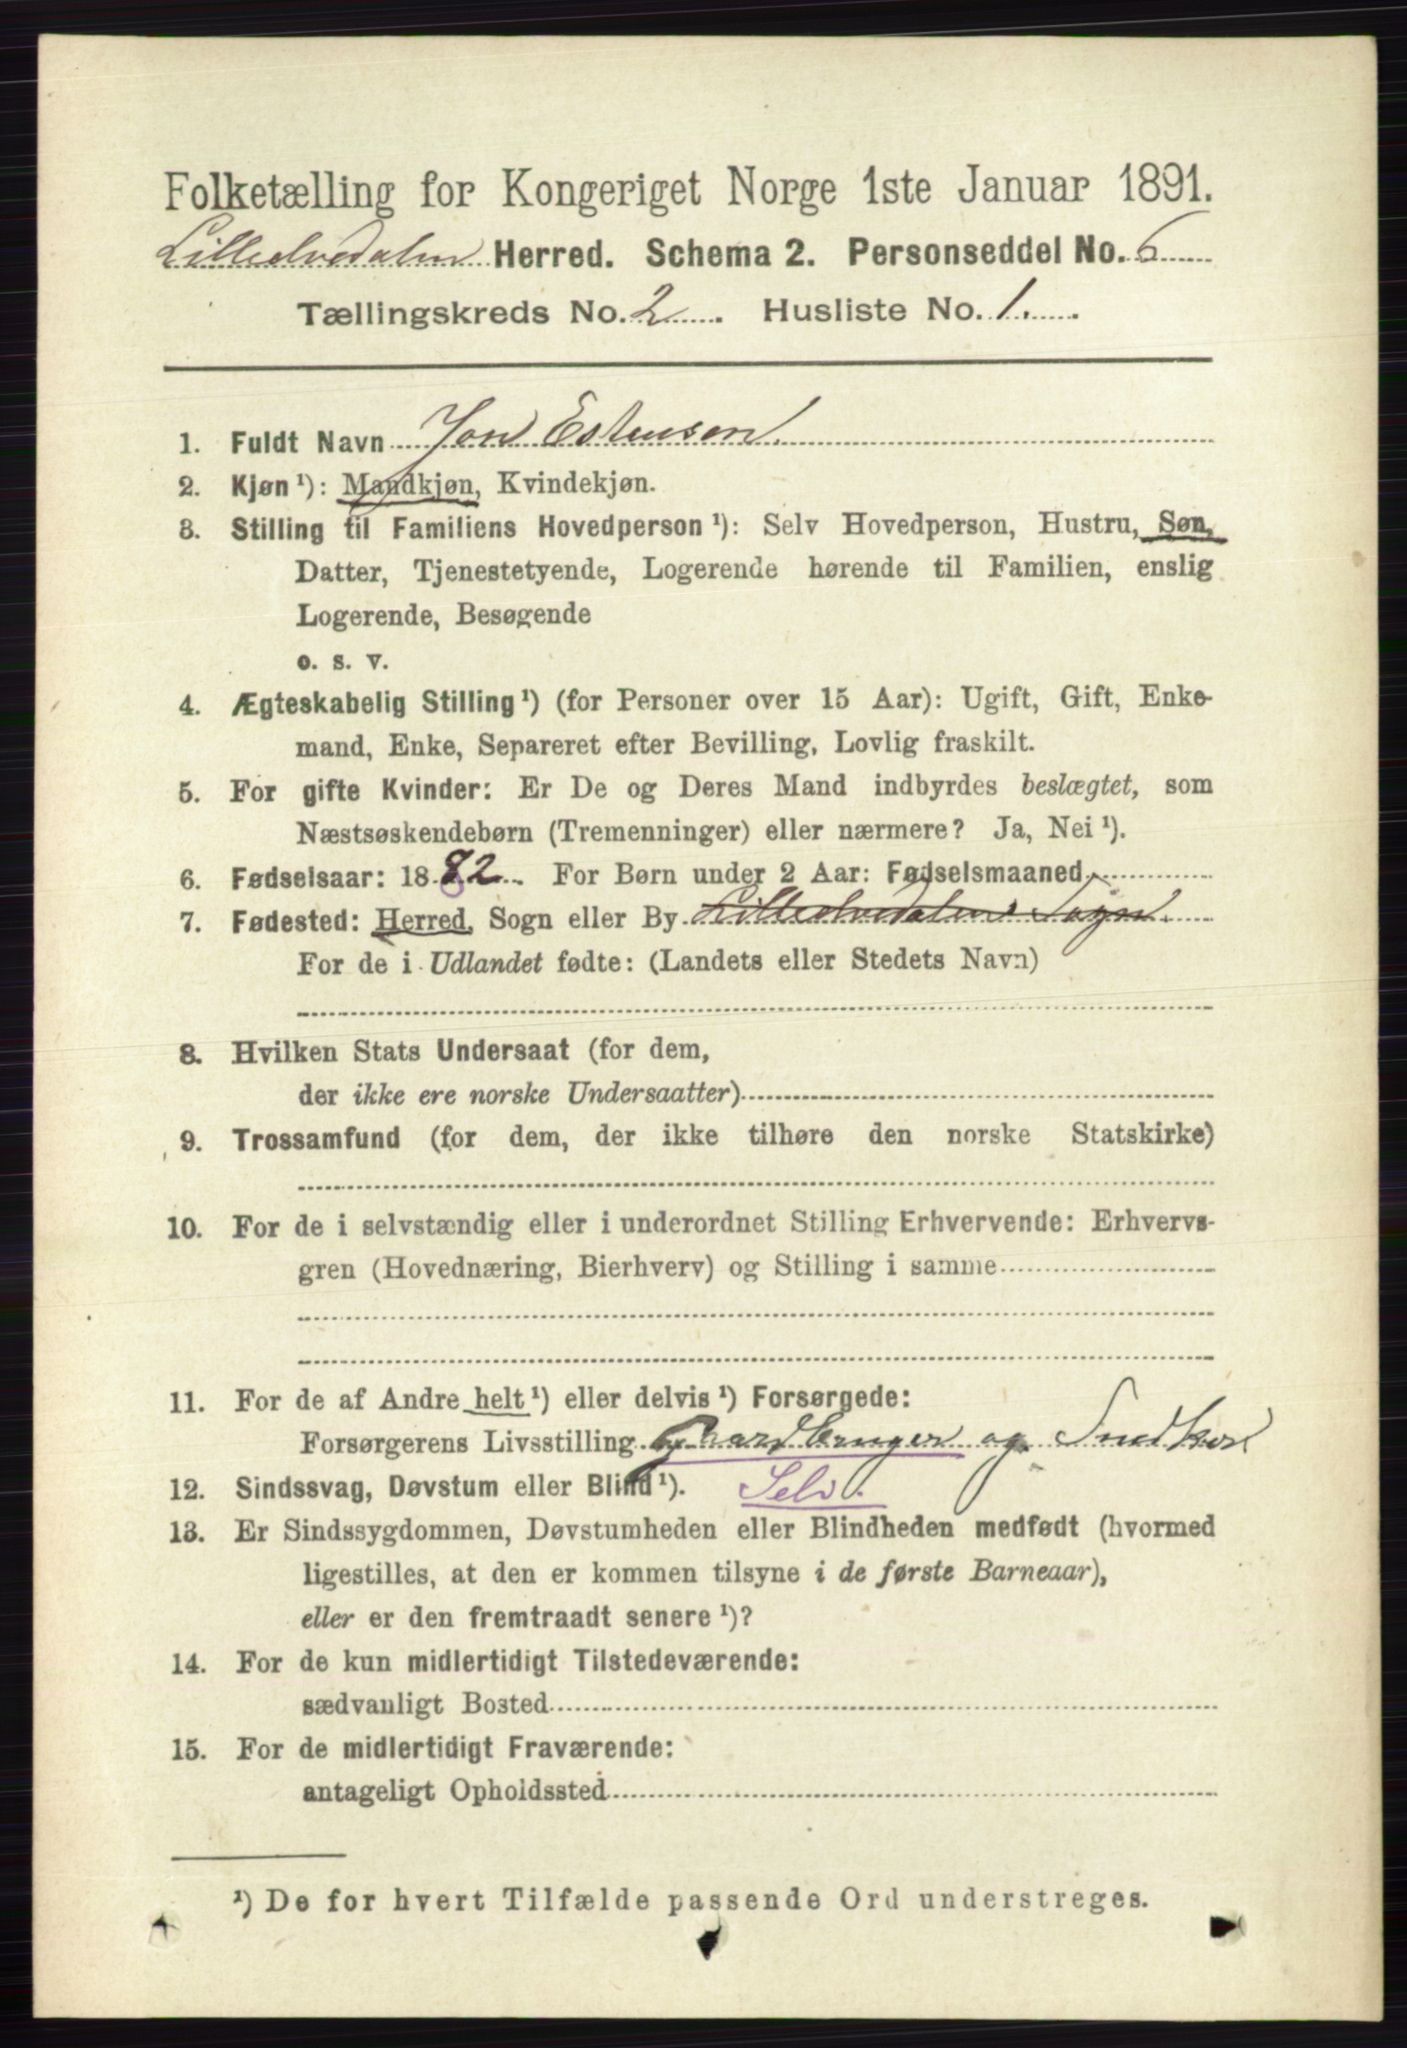 Folketælling for Kongeriget Norge 1ste Januar 1891.
Lilleelvedalen Herred. Schema 2. Personseddel No. 6
Tællingskreds No. 2. Husliste No. 1.
1. Fuldt Navn Jon Estensen.
2. Kjøn ¹): Mandkjøn, Kvindekjøn.
3. Stilling til Familiens Hovedperson ¹): Selv Hovedperson, Hustru, Søn,
Datter, Tjenestetyende, Logerende hørende til Familien, enslig
Logerende, Besøgende
o. s. v.
4. Ægteskabelig Stilling ¹) (for Personer over 15 Aar): Ugift, Gift, Enke-
mand, Enke, Separeret efter Bevilling, Lovlig fraskilt.
5. For gifte Kvinder: Er De og Deres Mand indbyrdes beslægtet, som
Næstsøskendebørn (Tremenninger) eller nærmere? Ja, Nei ¹).
6. Fødselsaar: 1882. For Børn under 2 Aar: Fødselsmaaned
7. Fødested: Herred, Sogn eller By Lilleelvedalens Sogn.
For de i Udlandet fødte: (Landets eller Stedets Navn)
8. Hvilken Stats Undersaat (for dem,
der ikke ere norske Undersaatter)
9. Trossamfund (for dem, der ikke tilhøre den norske Statskirke)
10. For de i selvstændig eller i underordnet Stilling Erhvervende: Erhvervs-
gren (Hovednæring, Bierhverv) og Stilling i samme
11. For de af Andre helt ¹) eller delvis ¹) Forsørgede:
Forsørgerens Livsstilling Gaardbruger og Snedker
12. Sindssvag, Døvstum eller Blind ¹). Selv.
13. Er Sindssygdommen, Døvstumheden eller Blindheden medfødt (hvormed
ligestilles, at den er kommen tilsyne i de første Barneaar),
eller er den fremtraadt senere ¹)?
14. For de kun midlertidigt Tilstedeværende:
sædvanligt Bosted
15. For de midlertidigt Fraværende:
antageligt Opholdssted
¹) De for hvert Tilfælde passende Ord understreges.